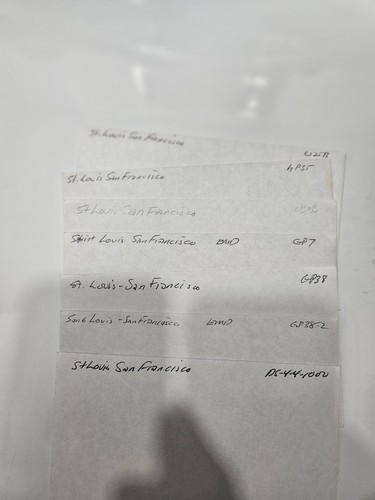 St. Louis San Francisco U25B
St. Louis San Francisco GP35
St Louis San Francisco
Saint Louis San Francisco EMD GP7
St. Louis-San Francisco GP38
Saint Louis-San Francisco EMD GP38-2
St Louis San Francisco DS-4-4-1000